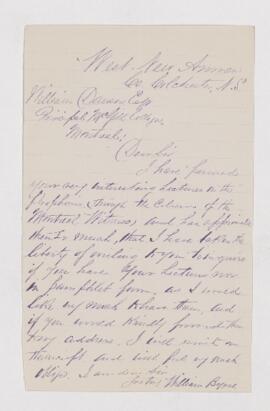 West New Annan
Co. Colchester, N.S.
William Dawson Esq
Principal McGill College
Montreal
Dear Sir
I have perused
your very interesting Lectures on the
(through the Columns of the
Montreal Witness) and has
them so much, that I have taken the
liberty of writing to you to enquire
if you have your Lectures now
in pamphlet form, as I would
like very much to have them, and
if you would kindly forward them
my address. I will remit on
and will feel very much
oblige. I am dear Sir
William Byrne